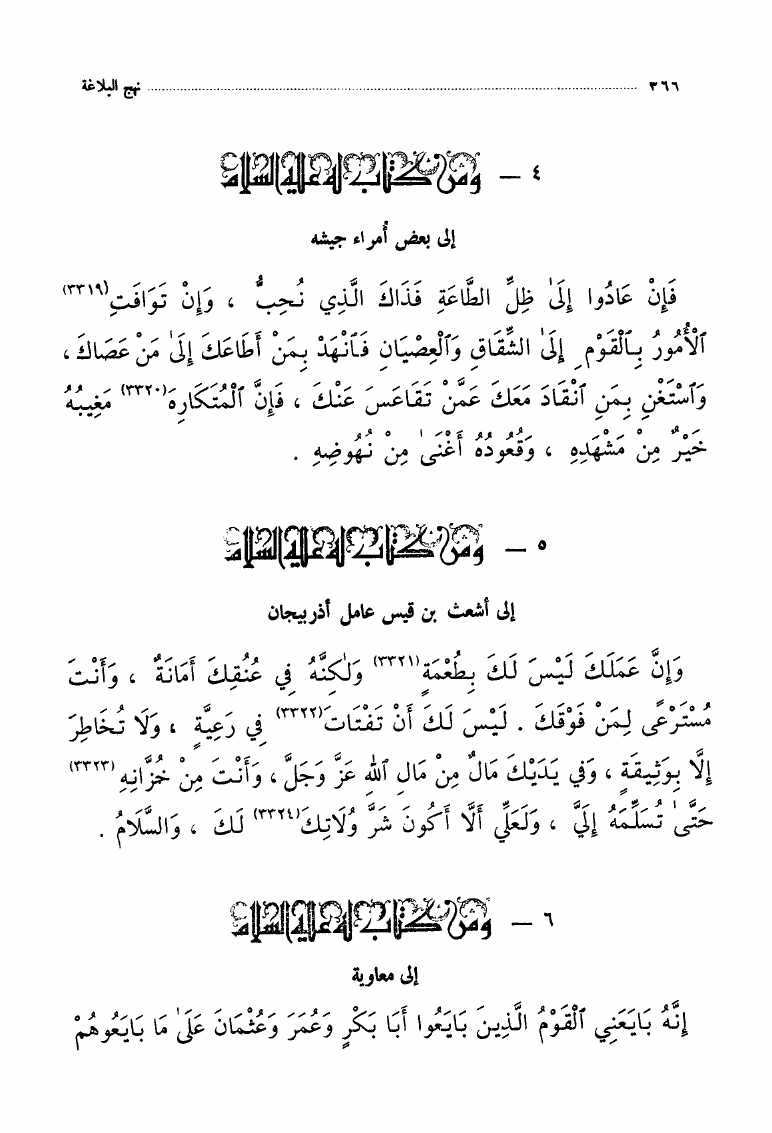 ٣٦٦ ........ نهج البلاغة
٤ – ومن كتاب له عليه السلام
إلى بعض أُمراء جيشه
فَإِنْ عَادُوا إِلَىٰ ظِلِّ الطَّاعَةِ فَذَاكَ الَّذِي نُحِبُّ ، وَإِنْ تَوَافَتِ(٣٣١٩)
ٱلْأُمُورُ بِٱلْقَوْمِ إِلَىٰ الشِّقَاقِ وَٱلْعِصْيَانِ فَٱنْهَدْ بِمَنْ أَطَاعَكَ إِلَىٰ مَنْ عَصَاكَ ،
وَٱسْتَغْنِ بِمَنِ ٱنْقَادَ مَعَكَ عَمَّنْ تَقَاعَسَ عَنْكَ ، فَإِنَّ ٱلْمُتَكَارِهَ(٣٣٢٠) مَغِيبُهُ
خَيْرٌ مِنْ مَشْهَدِهِ ، وَقُعُودُهُ أَغْنَىٰ مِنْ نُهُوضِهِ .
٥ – ومن كتاب له عليه السلام
إلى أشعث بن قيس عامل أذربيجان
وَإِنَّ عَمَلَكَ لَيْسَ لَكَ بِطُعْمَةٍ(٣٣٢١) وَلٰكِنَّهُ فِي عُنُقِكَ أَمَانَةٌ ، وَأَنْتَ
مُسْتَرْعًى لِمَنْ فَوْقَكَ . لَيْسَ لَكَ أَنْ تَفْتَاتَ(٣٣٢٢) فِي رَعِيَّةٍ ، وَلَا تُخَاطِرَ
إِلَّا بِوَثِيقَةٍ ، وَفِي يَدَيْكَ مَالٌ مِنْ مَالِ ٱللهِ عَزَّ وَجَلَّ ، وَأَنْتَ مِنْ خُزَّانِهِ(٣٣٢٣)
حَتَّىٰ تُسَلِّمَهُ إِلَيَّ ، وَلَعَلِّي أَلَّا أَكُونَ شَرَّ وُلَاتِكَ(٣٣٢٤) لَكَ ، وَالسَّلَامُ .
٦ – ومن كتاب له عليه السلام
إلى معاوية
إِنَّهُ بَايَعَنِي ٱلْقَوْمُ الَّذِينَ بَايَعُوا أَبَا بَكْرٍ وَعُمَرَ وَعُثْمَانَ عَلَىٰ مَا بَايَعُوهُمْ